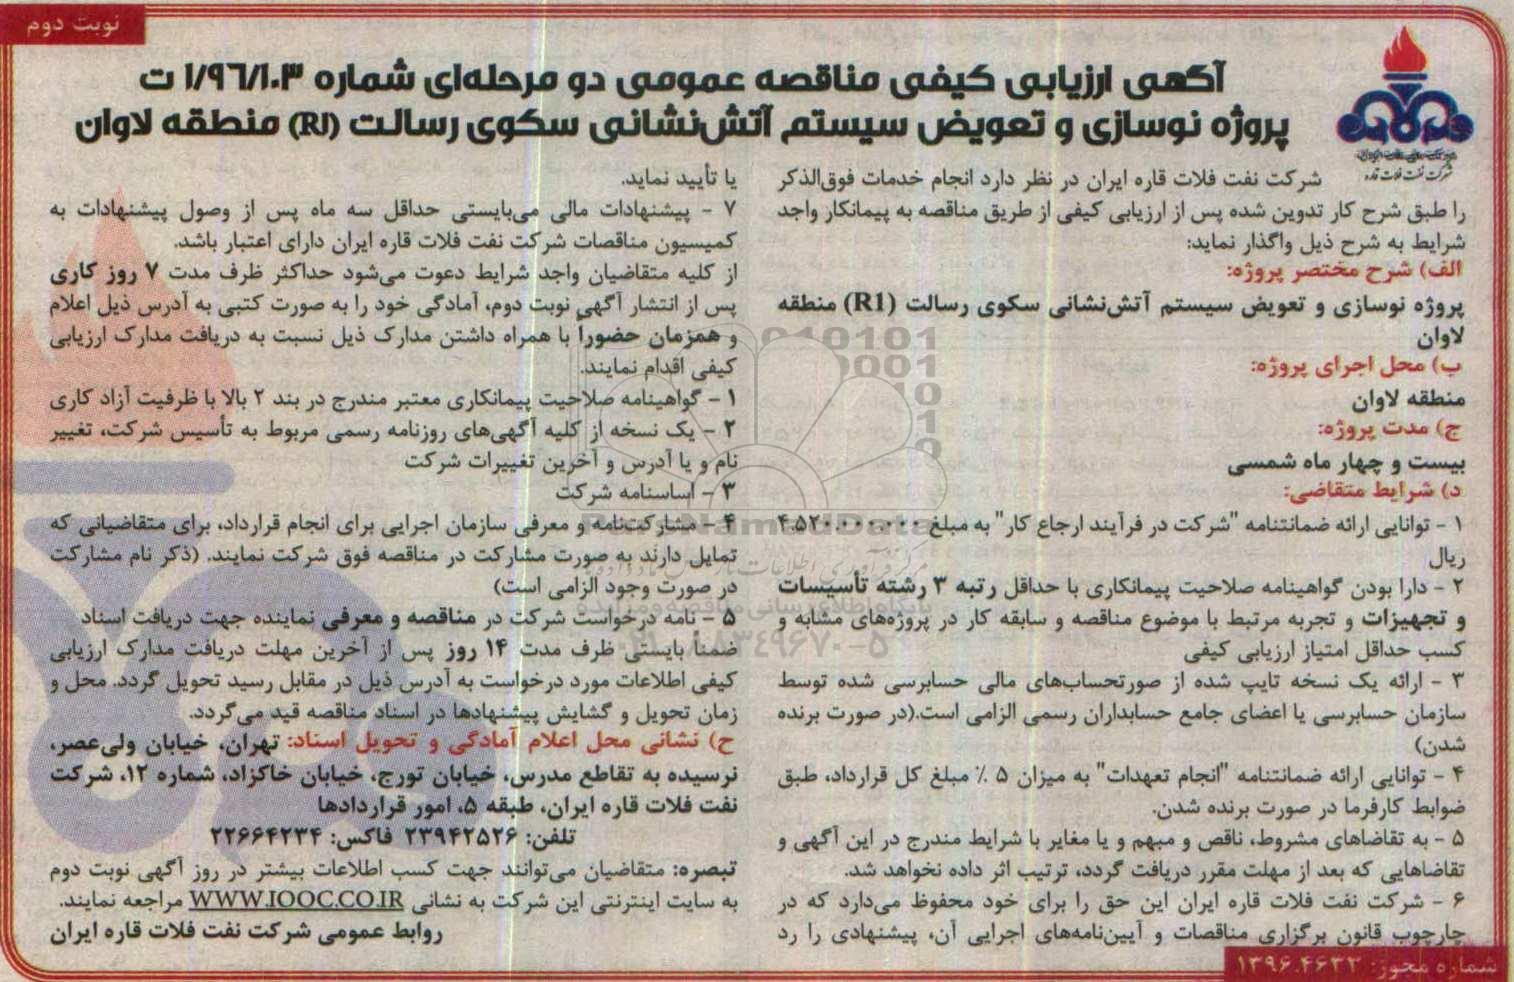 نوبت دوم
آگهی ارزیابی کیفی مناقصه عمومی دو مرحله‌ای شماره ۱/۹۶/۱۰۳ ت
پروژه نوسازی و تعویض سیستم آتش‌نشانی سکوی رسالت (R1) منطقه لاوان
شرکت نفت فلات قاره
شرکت نفت فلات قاره ایران در نظر دارد انجام خدمات فوق‌الذکر
را طبق شرح کار تدوین شده پس از ارزیابی کیفی از طریق مناقصه به پیمانکار واجد
شرایط به شرح ذیل واگذار نماید:
الف) شرح مختصر پروژه:
پروژه نوسازی و تعویض سیستم آتش‌نشانی سکوی رسالت (R1) منطقه
لاوان
ب) محل اجرای پروژه:
منطقه لاوان
ج) مدت پروژه:
بیست و چهار ماه شمسی
د) شرایط متقاضی:
۱ - توانایی ارائه ضمانتنامه "شرکت در فرآیند ارجاع کار" به مبلغ ۴.۵۲۰.۰۰۰.۰۰۰
ریال
۲ - دارا بودن گواهینامه صلاحیت پیمانکاری با حداقل رتبه ۳ رشته تأسیسات
و تجهیزات و تجربه مرتبط با موضوع مناقصه و سابقه کار در پروژه‌های مشابه و
کسب حداقل امتیاز ارزیابی کیفی
۳ - ارائه یک نسخه تایپ شده از صورتحساب‌های مالی حسابرسی شده توسط
سازمان حسابرسی یا اعضای جامع حسابداران رسمی الزامی است.(در صورت برنده
شدن)
۴ - توانایی ارائه ضمانتنامه "انجام تعهدات" به میزان ۵ ٪ مبلغ کل قرارداد، طبق
ضوابط کارفرما در صورت برنده شدن.
۵ - به تقاضاهای مشروط، ناقص و مبهم و یا مغایر با شرایط مندرج در این آگهی و
تقاضاهایی که بعد از مهلت مقرر دریافت گردد، ترتیب اثر داده نخواهد شد.
۶ - شرکت نفت فلات قاره ایران این حق را برای خود محفوظ می‌دارد که در
چارچوب قانون برگزاری مناقصات و آیین‌نامه‌های اجرایی آن، پیشنهادی را رد
یا تأیید نماید.
۷ - پیشنهادات مالی می‌بایستی حداقل سه ماه پس از وصول پیشنهادات به
کمیسیون مناقصات شرکت نفت فلات قاره ایران دارای اعتبار باشد.
از کلیه متقاضیان واجد شرایط دعوت می‌شود حداکثر ظرف مدت ۷ روز کاری
پس از انتشار آگهی نوبت دوم، آمادگی خود را به صورت کتبی به آدرس ذیل اعلام
و همزمان حضوراً با همراه داشتن مدارک ذیل نسبت به دریافت مدارک ارزیابی
کیفی اقدام نمایند.
۱ - گواهینامه صلاحیت پیمانکاری معتبر مندرج در بند ۲ بالا با ظرفیت آزاد کاری
۲ - یک نسخه از کلیه آگهی‌های روزنامه رسمی مربوط به تأسیس شرکت، تغییر
نام و یا آدرس و آخرین تغییرات شرکت
۳ - اساسنامه شرکت
۴ - مشارکت‌نامه و معرفی سازمان اجرایی برای انجام قرارداد، برای متقاضیانی که
تمایل دارند به صورت مشارکت در مناقصه فوق شرکت نمایند. (ذکر نام مشارکت
در صورت وجود الزامی است)
۵ - نامه درخواست شرکت در مناقصه و معرفی نماینده جهت دریافت اسناد
ضمناً بایستی ظرف مدت ۱۴ روز پس از آخرین مهلت دریافت مدارک ارزیابی
کیفی اطلاعات مورد درخواست به آدرس ذیل در مقابل رسید تحویل گردد. محل و
زمان تحویل و گشایش پیشنهادها در اسناد مناقصه قید می‌گردد.
ح) نشانی محل اعلام آمادگی و تحویل اسناد: تهران، خیابان ولی‌عصر،
نرسیده به تقاطع مدرس، خیابان تورج، خیابان خاکزاد، شماره ۱۲، شرکت
نفت فلات قاره ایران، طبقه ۵، امور قراردادها
تلفن: ۲۳۹۴۲۵۲۶ فاکس: ۲۲۶۶۴۲۳۴
تبصره: متقاضیان می‌توانند جهت کسب اطلاعات بیشتر در روز آگهی نوبت دوم
به سایت اینترنتی این شرکت به نشانی WWW.IOOC.CO.IR مراجعه نمایند.
روابط عمومی شرکت نفت فلات قاره ایران
شماره مجوز: ۱۳۹۶.۴۶۳۳
ParsNamadData
پایگاه اطلاع رسانی مناقصه و مزایده
۰۲۱-۸۸۳۴۹۶۷۰-۵